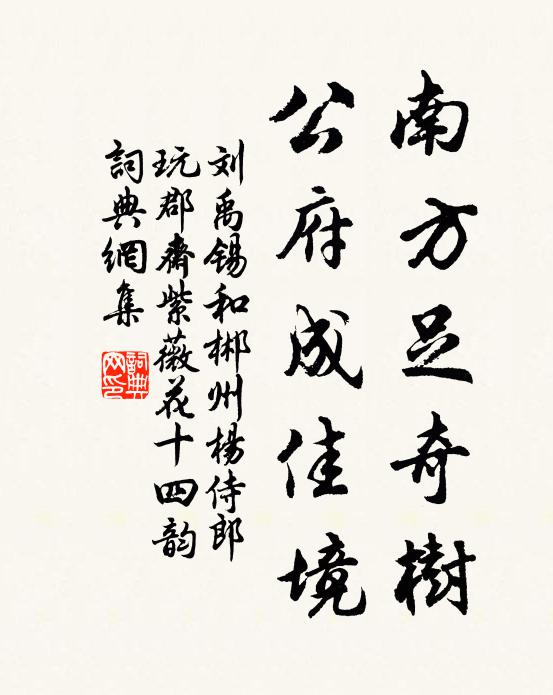 南方足奇樹
公府成佳境
刘禹锡和郴州楊侍郎
玩郡齋紫薇花十四韵
詞典網集
詞典
网印